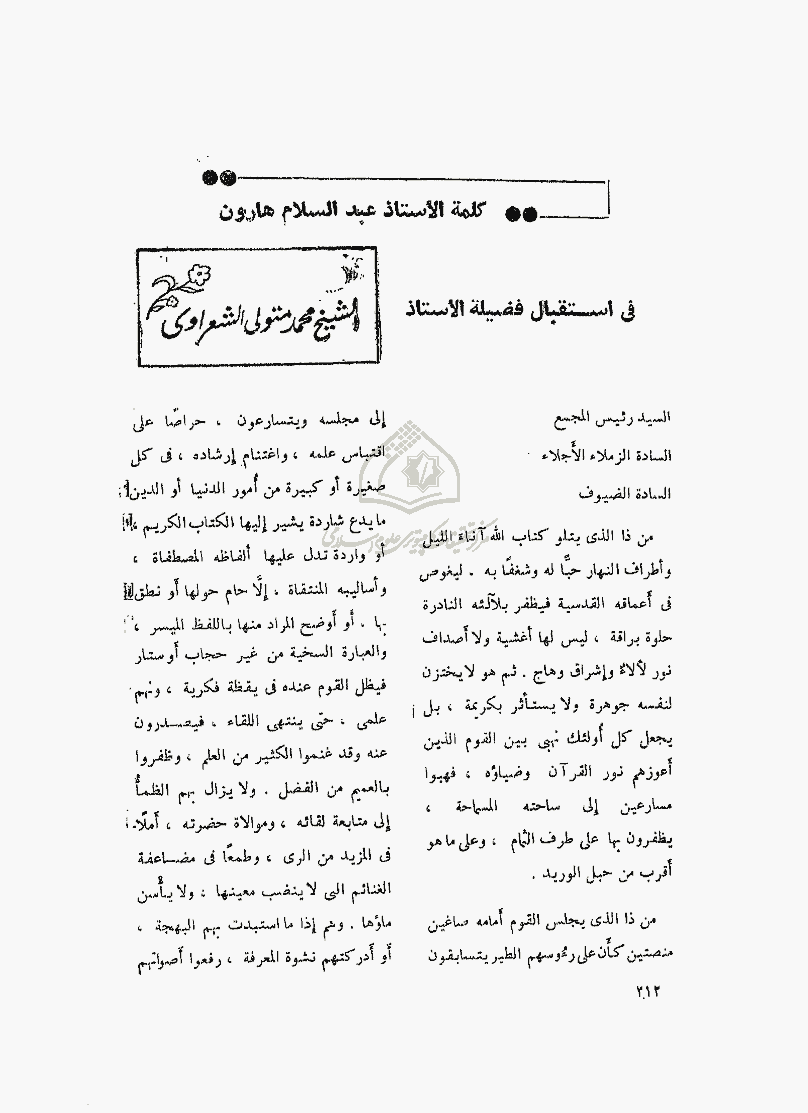 كلمة الأستاذ عبد السلام هارون
فى استقبال فضيلة الأستاذ
الشيخ محمد متولى الشعراوى
السيد رئيس المجمع
السادة الزملاء الأجلاء
السادة الضيوف
من ذا الذى يتلو كتاب الله آناء الليل
وأطراف النهار حبًّا له وشغفًا به . ليغوص
فى أعماقه القدسية فيظفر بلآلئه النادرة
حلوة براقة ، ليس لها أغشية ولا أصداف
نور لألاء وإشراق وهاج . ثم هو لا يختزن
لنفسه جوهرة ولا يستأثر بكريمة ، بل
يجعل كل أولئك نهبى بين القوم الذين
أعوزهم نور القرآن وضياؤه ، فهبوا
مسارعين إلى ساحته السماحة ،
يظفرون بها على طرف الثمام ، وعلى ما هو
أقرب من حبل الوريد .
من ذا الذى يجلس القوم أمامه صاغين
منصتين كأن على رءوسهم الطير يتسابقون
إلى مجلسه ويتسارعون ، حراصًا على
اقتباس علمه ، واغتنام إرشاده ، فى كل
صغيرة أو كبيرة من أمور الدنيا أو الدين
ما يدع شاردة يشير إليها الكتاب الكريم ،
أو واردة تدل عليها ألفاظه المصطفاة ،
وأساليبه المنتقاة ، إلَّا حام حولها أو نطق
بها ، أو أوضح المراد منها باللفظ الميسر ،
والعبارة السخية من غير حجاب أو ستار
فيظل القوم عنده فى يقظة فكرية ، ونهم
علمى ، حتى ينتهى اللقاء ، فيصدرون
عنه وقد غنموا الكثير من العلم ، وظفروا
بالعميم من الفضل . ولا يزال بهم الظمأُ
إلى متابعة لقائه ، وموالاة حضرته ، أملًا
فى المزيد من الرى ، وطمعًا فى مضاعفة
الغنائم التى لا ينضب معينها ، ولا يأسن
ماؤها . وهم إذا ما استبدت بهم البهجة ،
أو أدركتهم نشوة المعرفة ، رفعوا أصواتهم
٢١٢